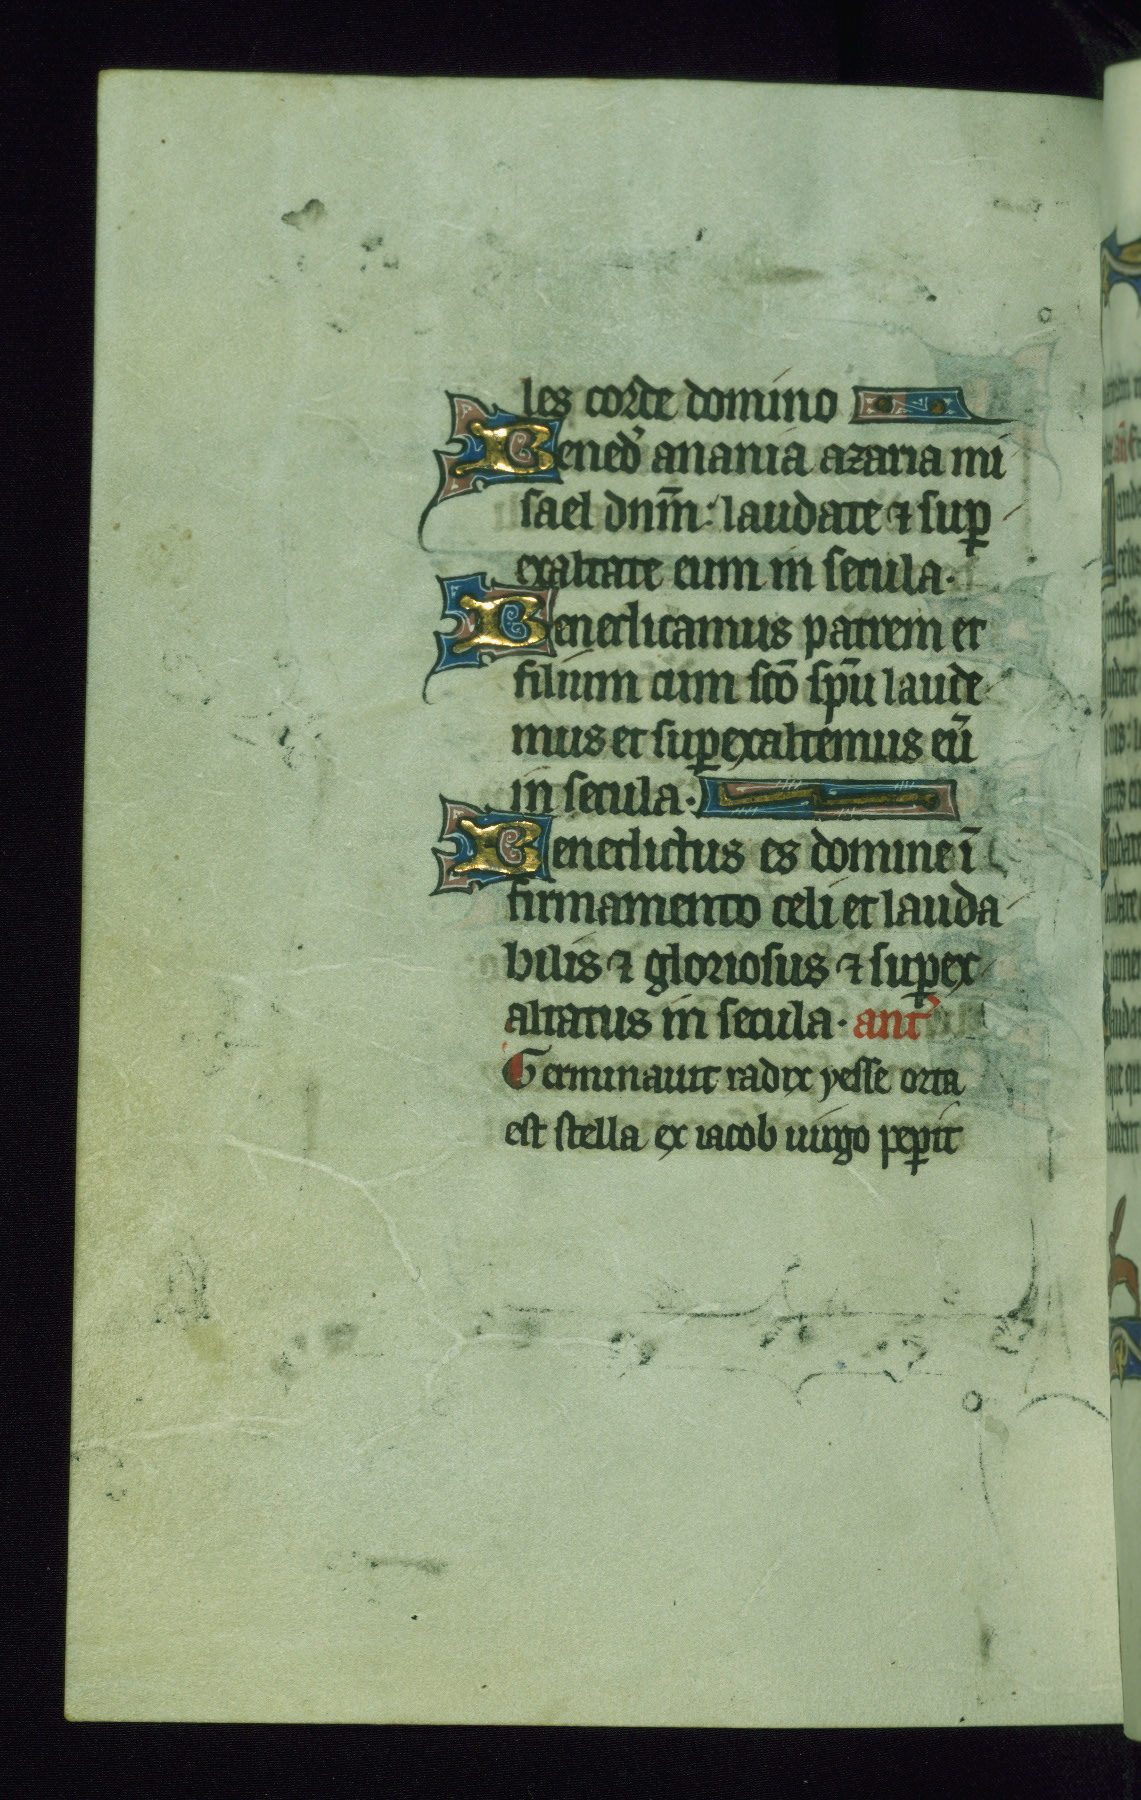 les corde domino
Bened' anania azaria mi
sael dn̄m: laudate ⁊ suꝑ
exaltate eum in secula.
Benedicamus patrem et
filium cum sc̄o sp̄u laude
mus et suꝑexaltemus eū
in secula.
Benedictus es domine ī
firmamento celi et lauda
bilis ⁊ gloriosus ⁊ suꝑex
altatus in secula. ant'
Germinauit radix yesse orta
est stella ex iacob uirgo peꝑit